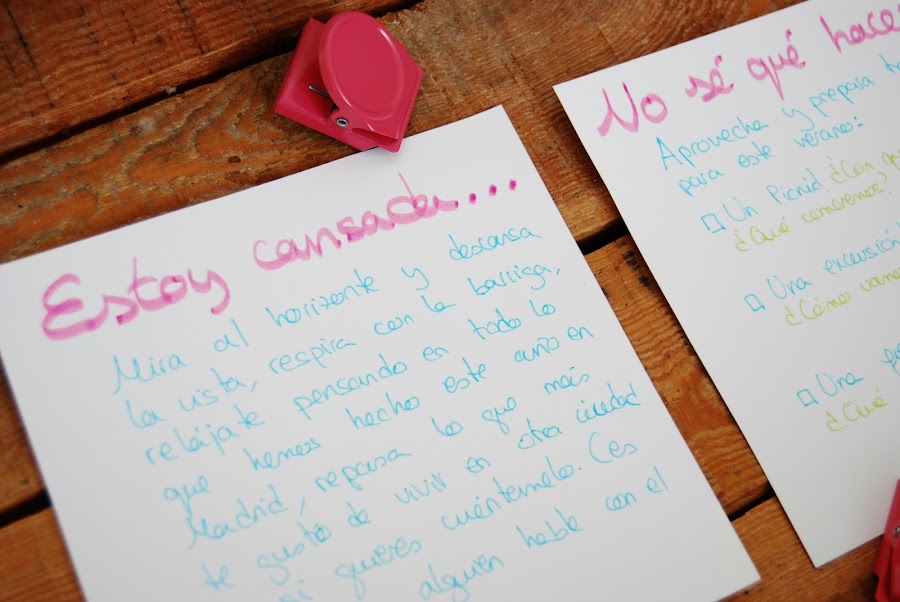 Estoy cansada...
Mira al horizonte y descansa
la vista, respira con la barriga,
relájate pensando en todo lo
que hemos hecho este año en
Madrid, repasa lo que más
te gustó de vivir en otra ciudad
si quieres cuéntemelo. (es
alguien hable con el
No sé qué hacer
Aprovecha y prepara
para este verano:
Un Picnic. ¿Con
¿Qué comeremos?
Una excursión
¿Cómo vamos
Una
¿Qué